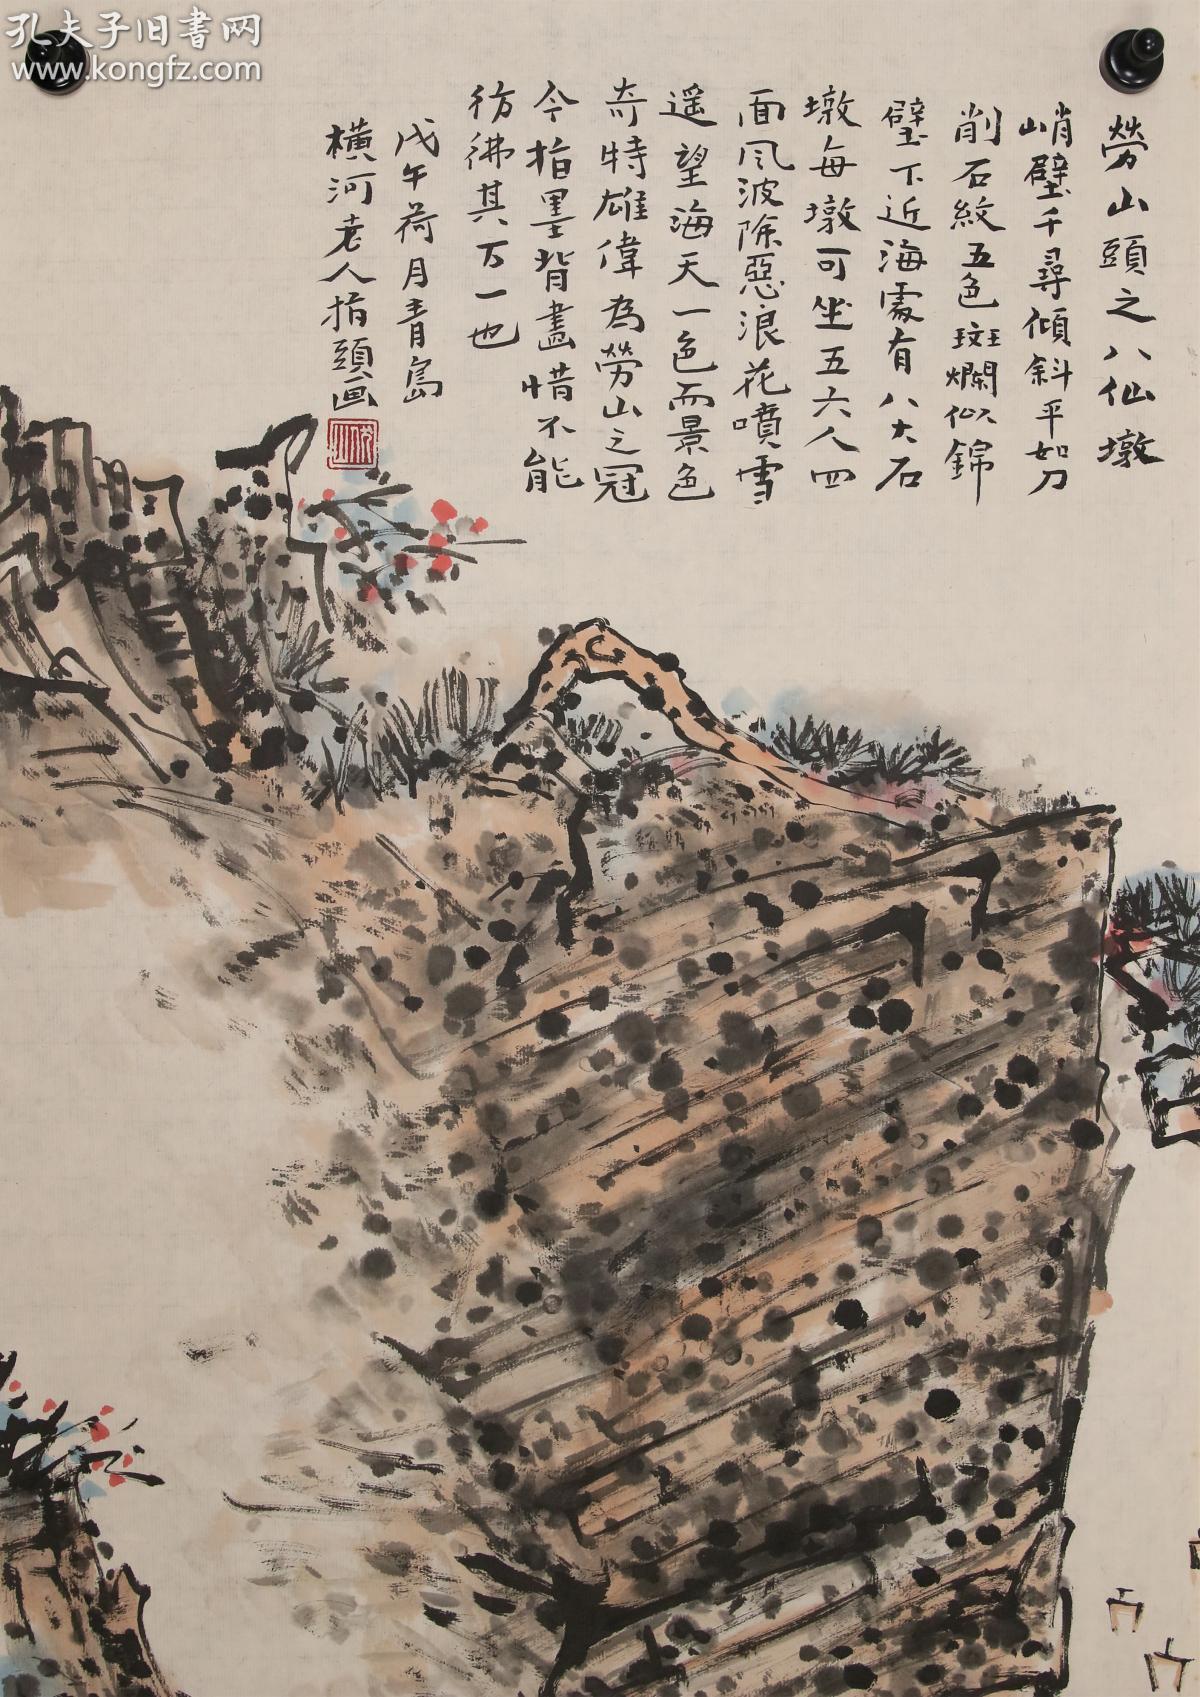 孔夫子旧書网
www.kongfz.com
勞山頭之八仙墩
峭壁千尋傾斜平如刀
削石紋五色斑斕似錦
壁下近海處有八大石
墩每墩可坐五六人四
面風波險惡浪花噴雪
遥望海天一色而景色
奇特雄偉為勞山之冠
今指墨背畫惜不能
彷彿其万一也
戊午荷月青島
橫河老人指頭画